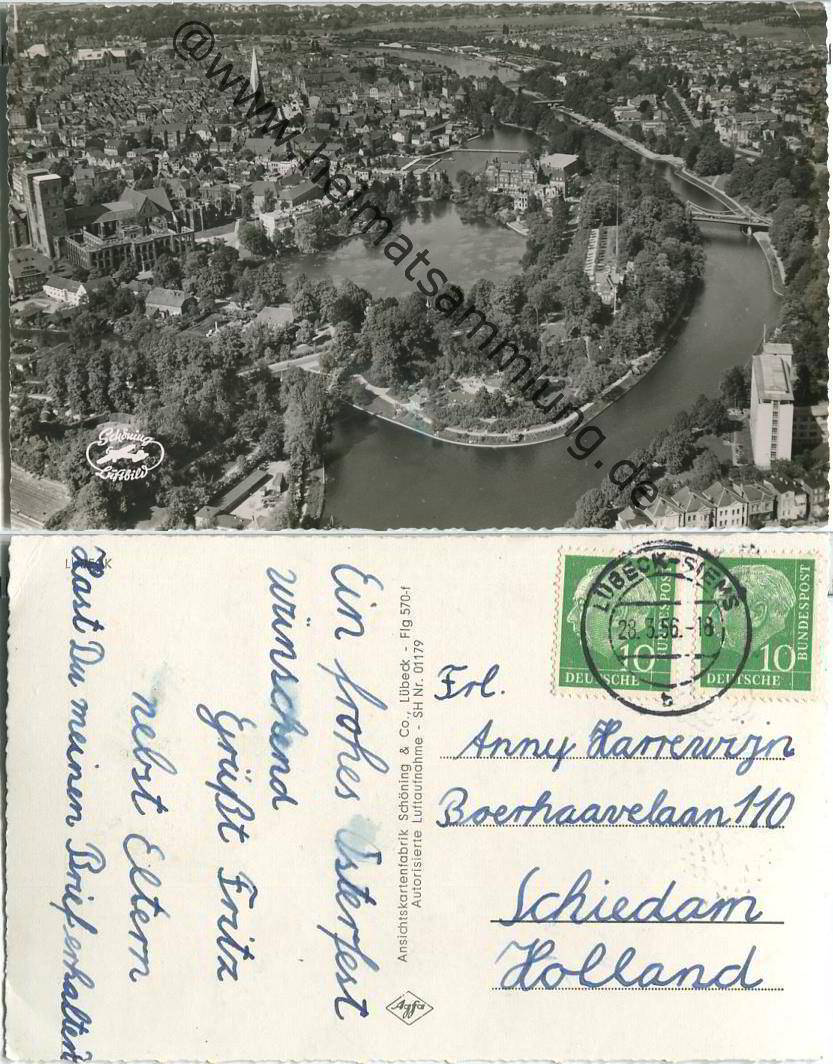 @www.heimatsammlung.de
Schöning
Luftbild
LÜBECK
Ein frohes Osterfest
wünschend
Grüßt Fritz
nebst Eltern
Hast Du meinen Brief erhalten
Ansichtskartenfabrik Schöning & Co., Lübeck - Flg 570-f
Autorisierte Luftaufnahme - SH Nr. 01179
Agfa
LÜBECK-SIEMS
28.3.56.-18
10
DEUTSCHE
BUNDESPOST
10
DEUTSCHE
BUNDESPOST
Frl.
Anny Harrewijn
Boerhaavelaan 110
Schiedam
Holland